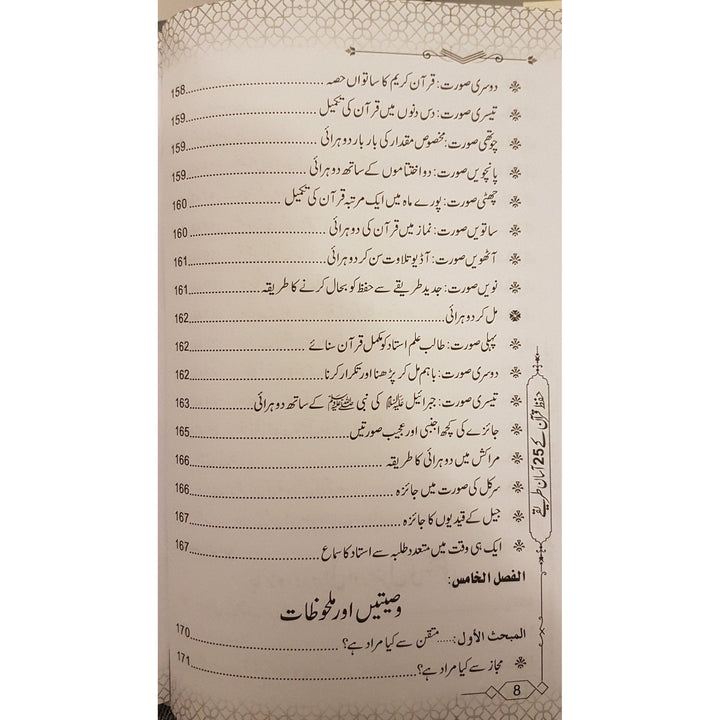 دوسری صورت: قرآن کریم کا ساتواں حصہ ........ 158
تیسری صورت: دس دنوں میں قرآن کی تکمیل ........ 159
چوتھی صورت: مخصوص مقدار کی بار بار دوہرائی ........ 159
پانچویں صورت: دو اختتاموں کے ساتھ دوہرائی ........ 159
چھٹی صورت: پورے ماہ میں ایک مرتبہ قرآن کی تکمیل ........ 160
ساتویں صورت: نماز میں قرآن کی دوہرائی ........ 160
آٹھویں صورت: آڈیو تلاوت سن کر دوہرائی ........ 161
نویں صورت: جدید طریقے سے حفظ کو بحال کرنے کا طریقہ ........ 161
مل کر دوہرائی ........ 162
پہلی صورت: طالب علم استاد کو مکمل قرآن سنائے ........ 162
دوسری صورت: باہم مل کر پڑھنا اور تکرار کرنا ........ 162
تیسری صورت: جبرائیل علیہ السلام کی نبی ﷺ کے ساتھ دوہرائی ........ 163
جائزے کی کچھ اجنبی اور عجیب صورتیں ........ 165
مراکش میں دوہرائی کا طریقہ ........ 166
سرکل کی صورت میں جائزہ ........ 166
جیل کے قیدیوں کا جائزہ ........ 167
ایک ہی وقت میں متعدد طلبہ سے استاد کا سماع ........ 167
الفصل الخامس:
وصیتیں اور ملحوظات
المبحث الأول: ..... متقن سے کیا مراد ہے؟ ........ 170
مجاز سے کیا مراد ہے؟ ........ 171
حفظ قرآن کے 25 آسان طریقے
8